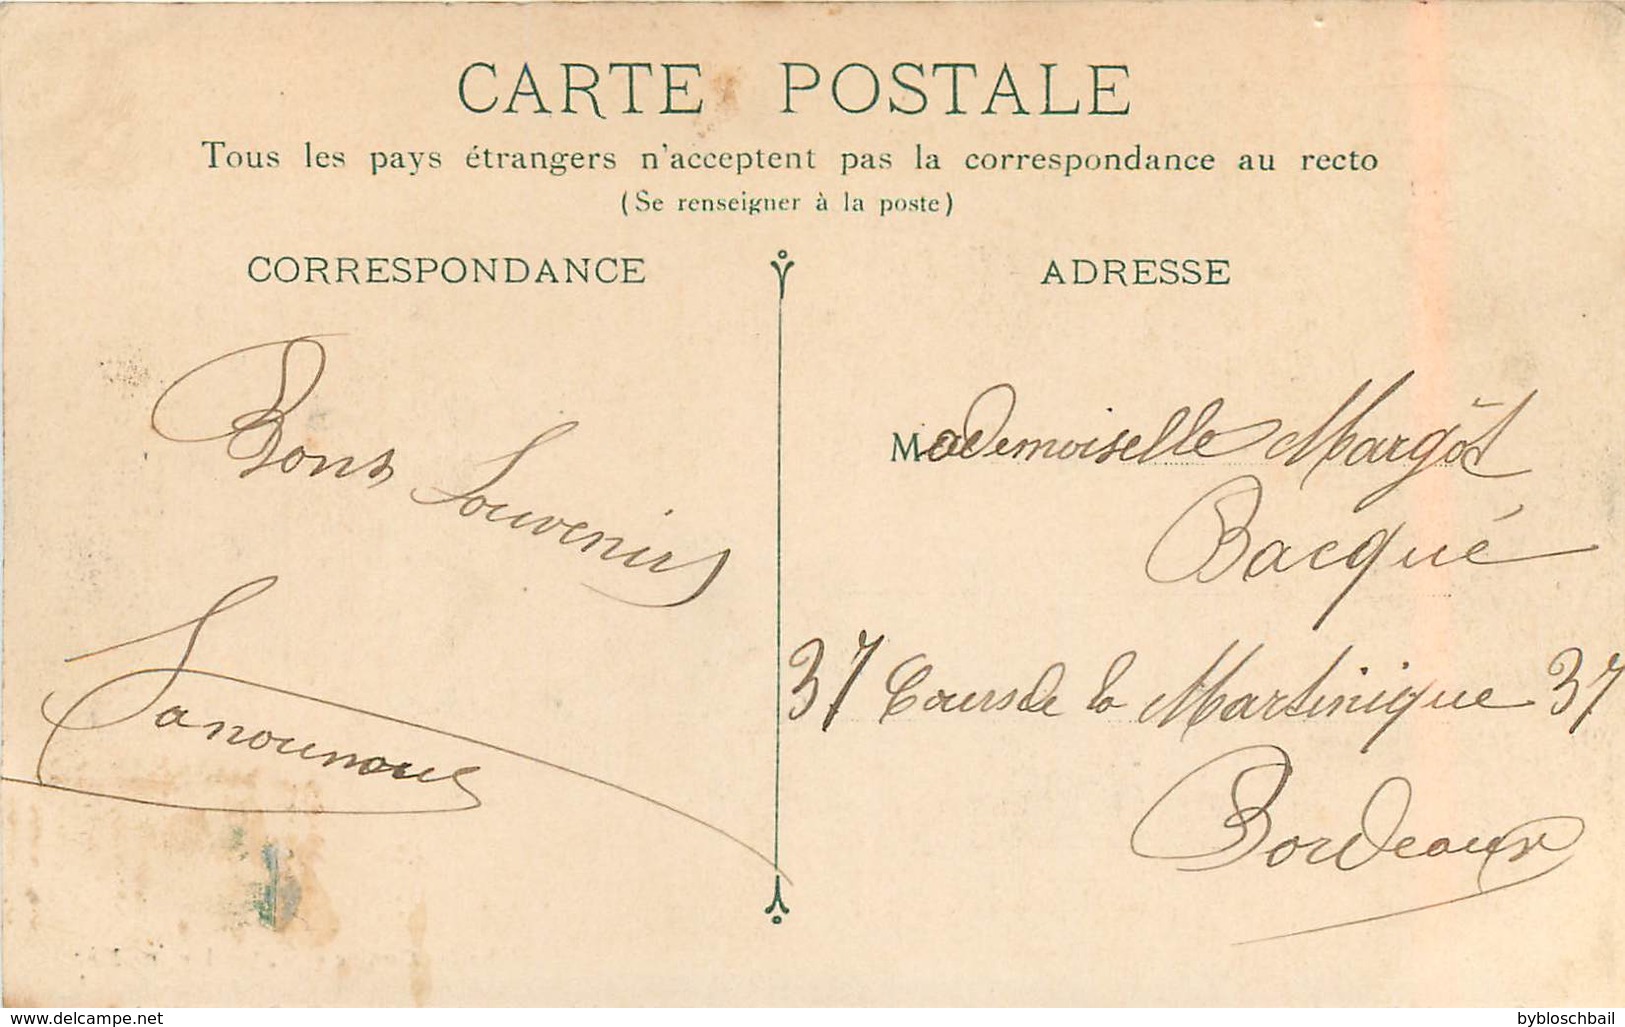 CARTE POSTALE
Tous les pays étrangers n'acceptent pas la correspondance au recto
(Se renseigner à la poste)
CORRESPONDANCE
Bons Souvenirs
ADRESSE
Mademoiselle Margot
Bacqué
37 Cours de la Martinique 37
Bordeaux
www.delcampe.net
bybloschbail